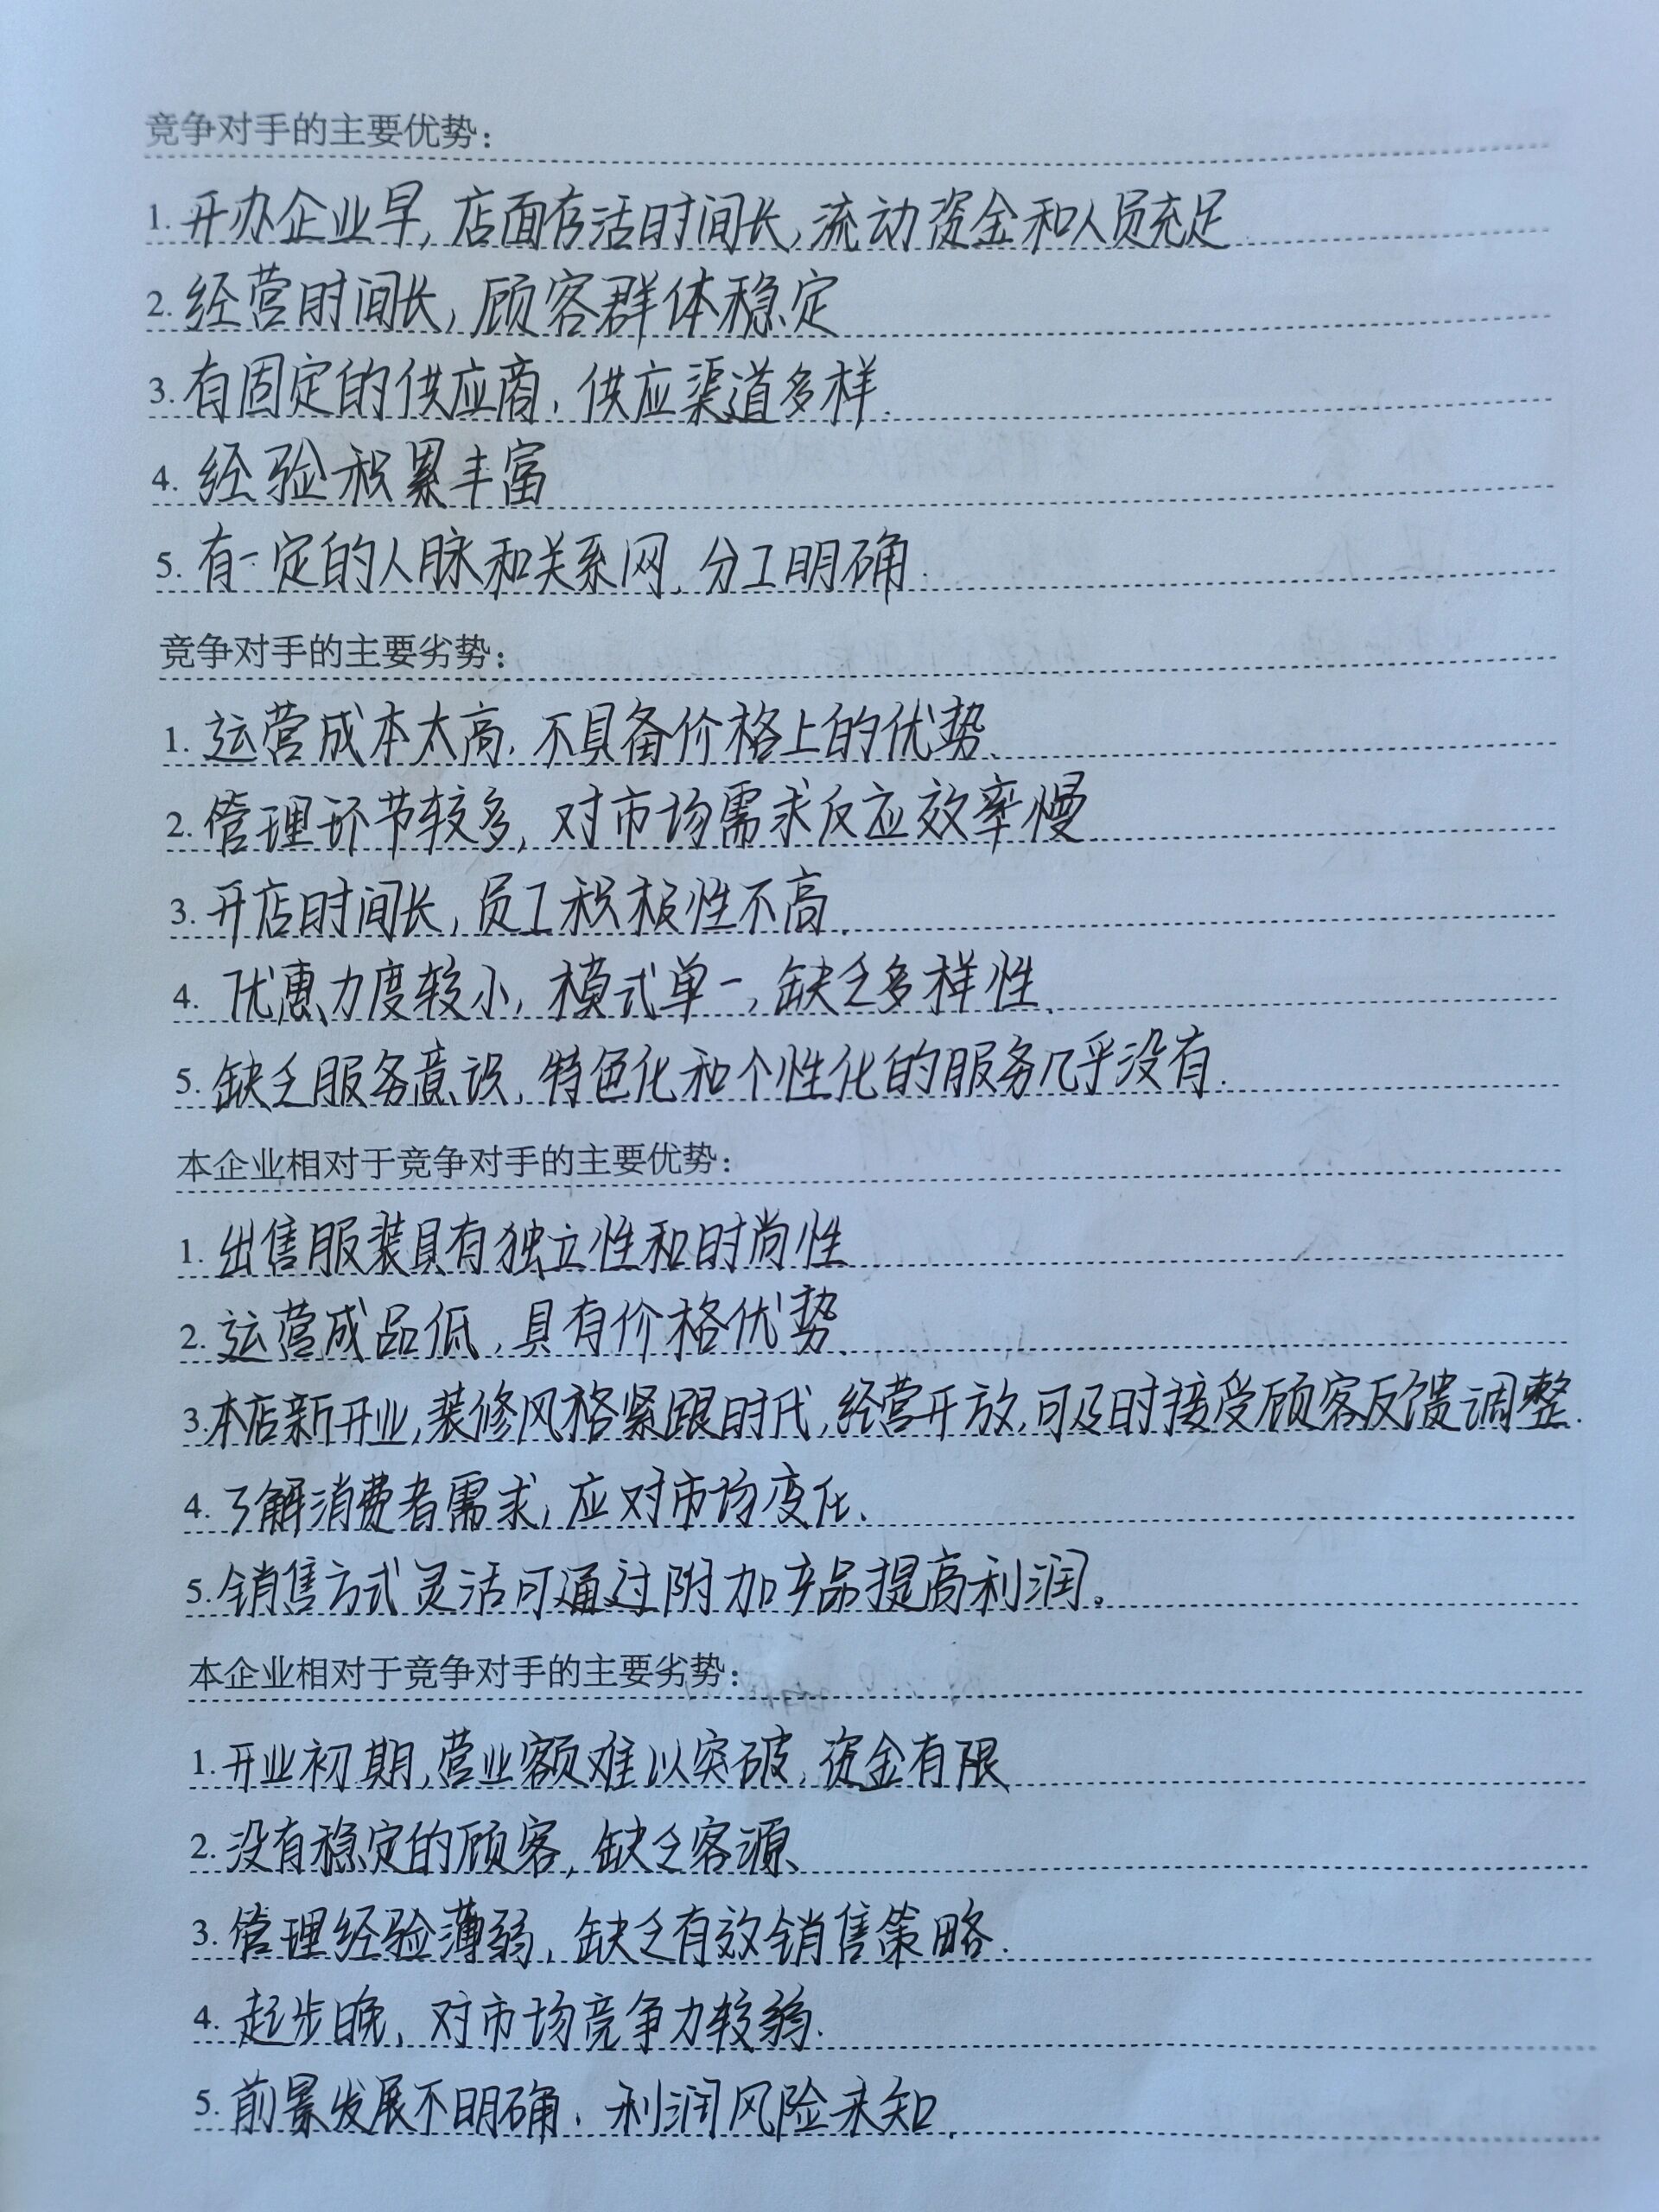 竞争对手的主要优势：
1. 开办企业早，店面存活时间长，流动资金和人员充足
2. 经营时间长，顾客群体稳定
3. 有固定的供应商，供应渠道多样.
4. 经验积累丰富
5. 有一定的人脉和关系网，分工明确.
竞争对手的主要劣势：
1. 运营成本太高，不具备价格上的优势.
2. 管理环节较多，对市场需求反应效率慢
3. 开店时间长，员工积极性不高.
4. 优惠力度较小，模式单一，缺乏多样性.
5. 缺乏服务意识，特色化和个性化的服务几乎没有.
本企业相对于竞争对手的主要优势：
1. 出售服装具有独立性和时尚性
2. 运营成品低，具有价格优势.
3. 本店新开业，装修风格紧跟时代，经营开放，可及时接受顾客反馈调整.
4. 了解消费者需求，应对市场变化.
5. 销售方式灵活可通过附加产品提高利润。
本企业相对于竞争对手的主要劣势：
1. 开业初期，营业额难以突破，资金有限
2. 没有稳定的顾客，缺乏客源
3. 管理经验薄弱，缺乏有效销售策略.
4. 起步晚，对市场竞争力较弱.
5. 前景发展不明确，利润风险未知.